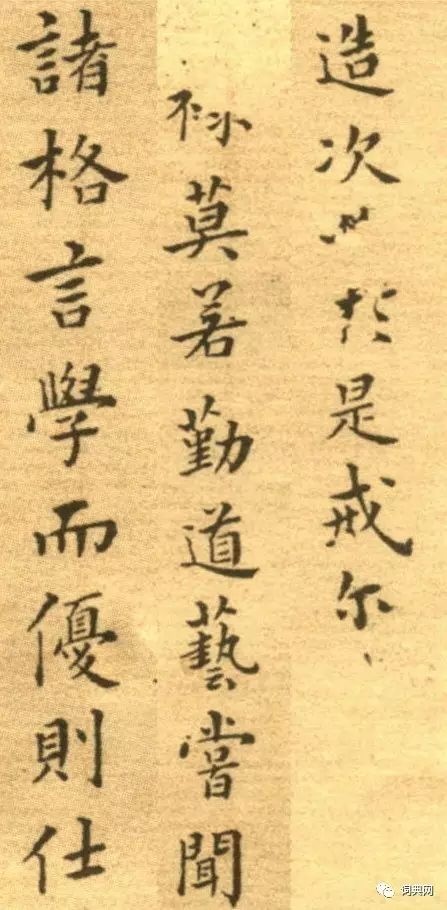 造次必於是戒尔
莫若勤道藝嘗聞
諸格言學而優則仕
词典网